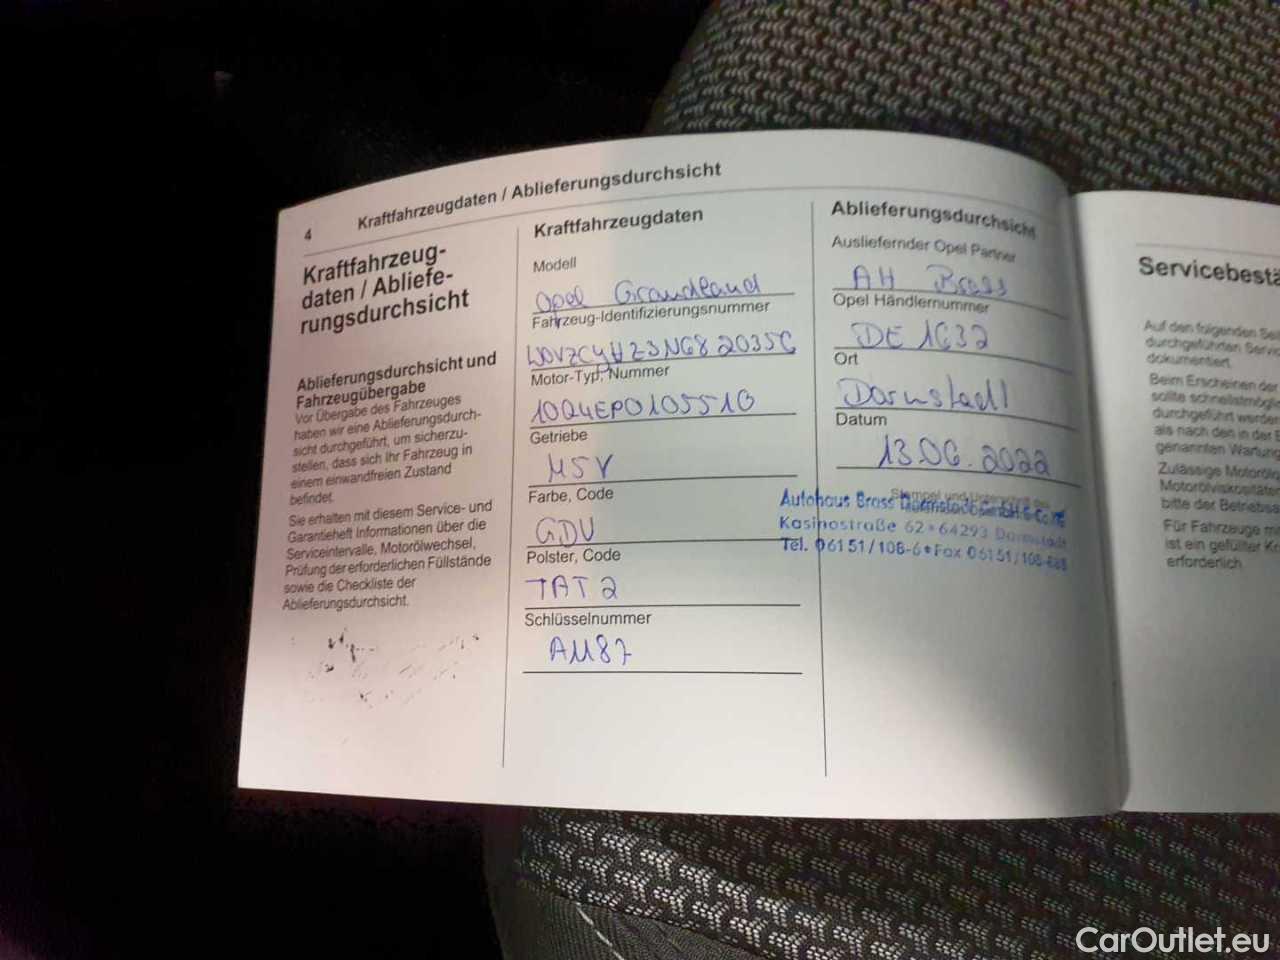 4
Kraftfahrzeugdaten / Ablieferungsdurchsicht
Kraftfahrzeug-
daten / Abliefe-
rungsdurchsicht
Ablieferungsdurchsicht und
Fahrzeugübergabe
Vor Übergabe des Fahrzeuges
haben wir eine Ablieferungsdurch-
sicht durchgeführt, um sicherzu-
stellen, dass sich Ihr Fahrzeug in
einem einwandfreien Zustand
befindet.
Sie erhalten mit diesem Service- und
Garantieheft Informationen über die
Serviceintervalle, Motorölwechsel,
Prüfung der erforderlichen Füllstände
sowie die Checkliste der
Ablieferungsdurchsicht.
Kraftfahrzeugdaten
Modell
Opel Grandland
Fahrzeug-Identifizierungsnummer
W0VZCYHZ3N6820356
Motor-Typ, Nummer
10Q4EP0105510
Getriebe
M5V
Farbe, Code
GDU
Polster, Code
TAT2
Schlüsselnummer
A1187
Ablieferungsdurchsicht
Ausliefernder Opel Partner
AH Brass
Opel Händlernummer
DE 1632
Ort
Darmstadt
Datum
13.06.2022
Stempel und Unterschrift des
Autohaus Brass Darmstadt GmbH & Co. KG
Kasinostraße 62 * 64293 Darmstadt
Tel. 06151/106-6 * Fax 06151/106-888
Servicebestä
Auf den folgenden Se
durchgeführten Servi
dokumentiert.
Beim Erscheinen der
sollte schnellstmögl
durchgeführt werden
als nach den in der
genannten Wartung
Zulässige Motorölv
Motorölviskositäten
bitte der Betriebsa
Für Fahrzeuge mi
ist ein gefüllter K
erforderlich.
CarOutlet.eu